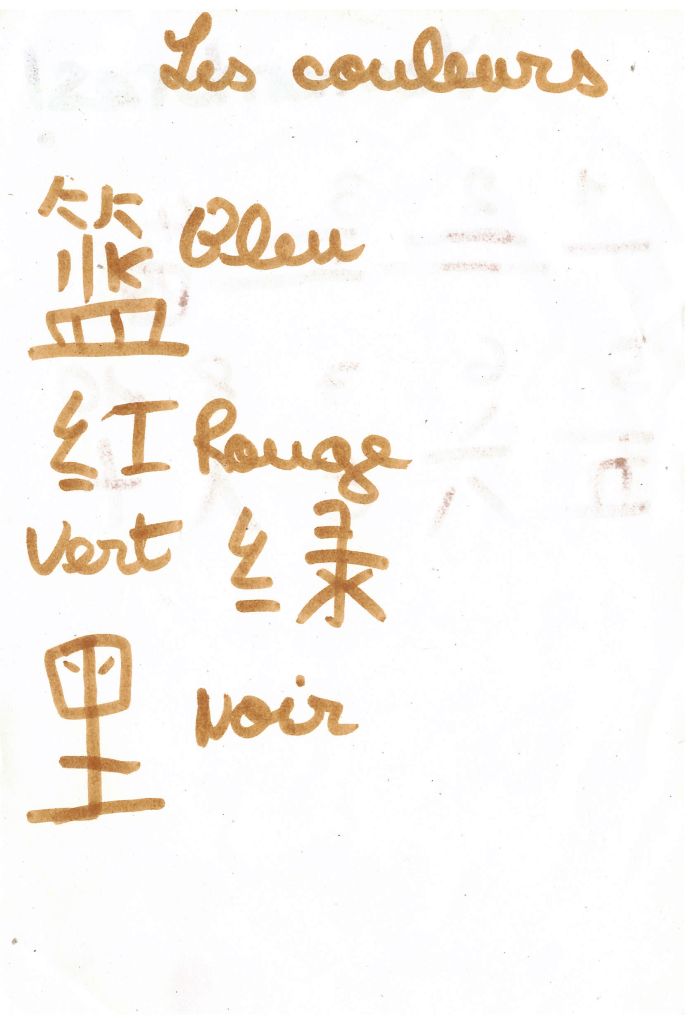 Les couleurs
篮 Bleu
红 Rouge
Vert 绿
黑 Noir